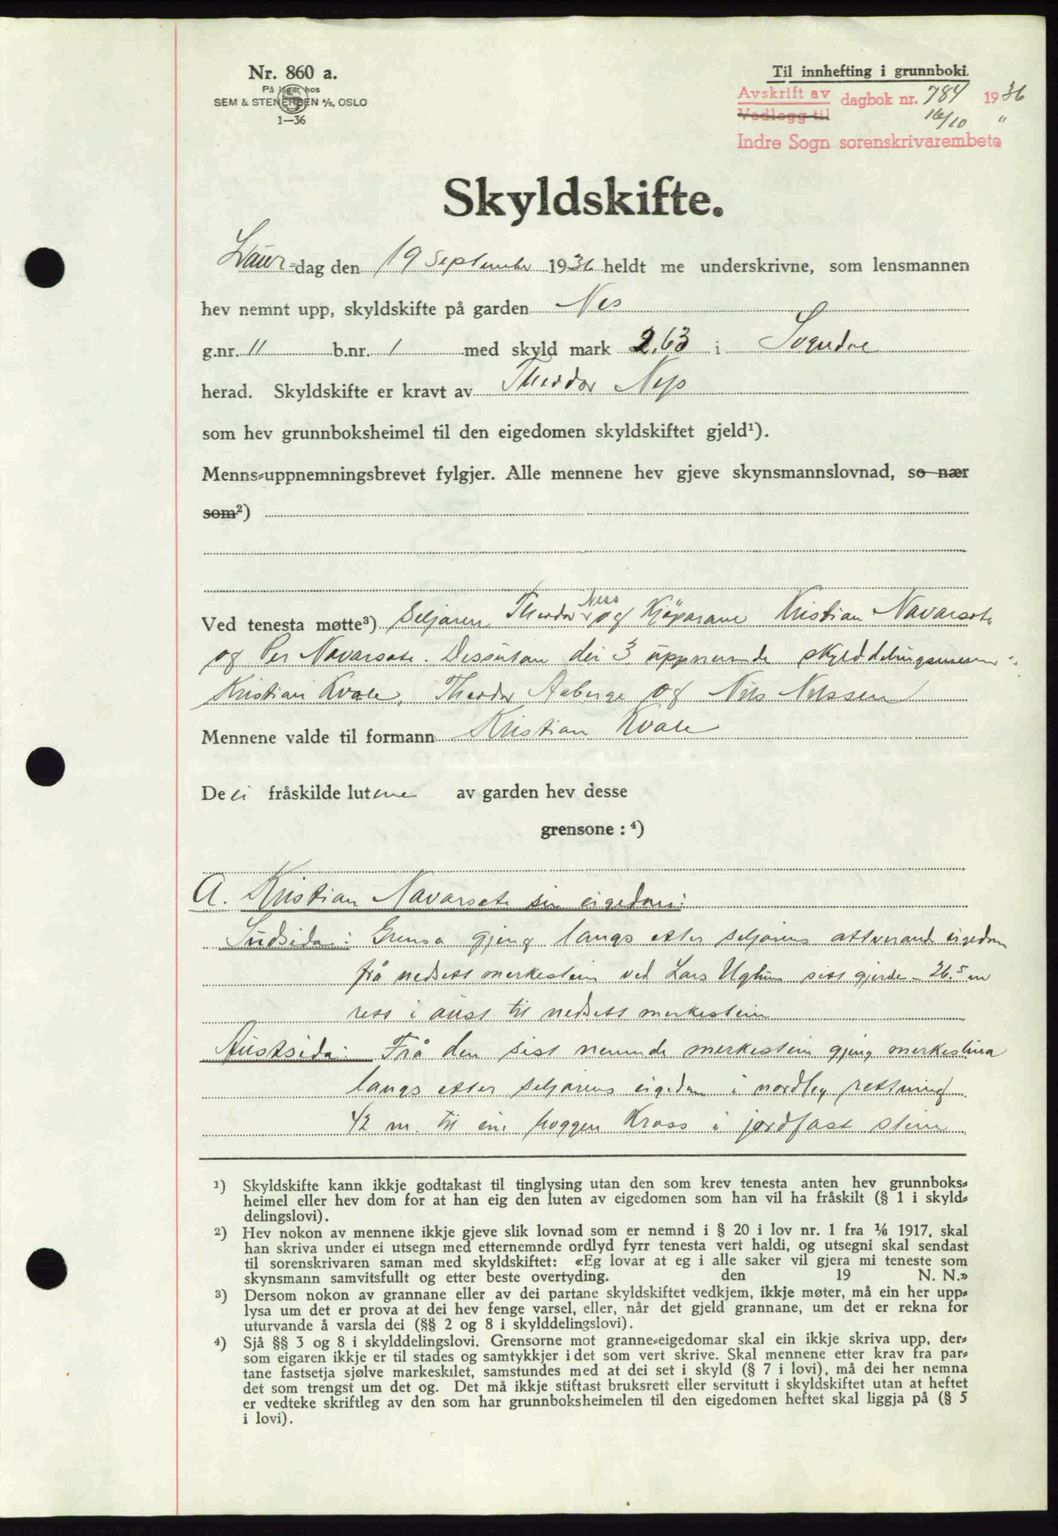 Nr. 860 a.
På lager hos
SEM & STENERSEN A/S, OSLO
1—36
Til innhefting i grunnboki.
Avskrift av
Vedlegg til
dagbok nr. 784 1936
16/10 "
Indre Sogn sorenskrivarembete
Skyldskifte.
Laur-dag den 19 September 1936 heldt me underskrivne, som lensmannen
hev nemnt upp, skyldskifte på garden Nes
g.nr. 11 b.nr. 1 med skyld mark 2,63 i Sogndal
herad. Skyldskifte er kravt av Theodor Ness
som hev grunnboksheimel til den eigedomen skyldskiftet gjeld¹).
Menns-uppnemningsbrevet fylgjer. Alle mennene hev gjeve skynsmannslovnad, so nær
som²)
Ved tenesta møtte³) Seljaren Theodor Ness og Kjöparane Kristian Navarsete
og Per Navarsete. Dessutan dei 3 uppnemnde skylddelingsmenn
Kristian Kvale, Theodor Aaberge og Nils Nilssen
Mennene valde til formann Kristian Kvale
Dei fråskilde lutene av garden hev desse
grensone : ⁴)
A. Kristian Navarsete sin eigedom:
Sudsida: Grensa gjeng langs etter seljarens attverande eigedom
frå nedsett merkestein ved Lars Uglum sitt gjerde – 26.5 m
rett i aust til nedsett merkestein
Austsida: Frå den sist nemnde merkestein gjeng merkeslina
langs etter seljarens eigedom i nordleg rettning
42 m. til ein hoggen Kross i jordfast stein
¹) Skyldskifte kann ikkje godtakast til tinglysing utan den som krev tenesta anten hev grunnboks-
heimel eller hev dom for at han eig den luten av eigedomen som han vil ha fråskilt (§ 1 i skyld-
delingslovi).
²) Hev nokon av mennene ikkje gjeve slik lovnad som er nemnd i § 20 i lov nr. 1 fra 1/6 1917, skal
han skriva under ei utsegn med etternemnde ordlyd fyrr tenesta vert haldi, og utsegni skal sendast
til sorenskrivaren saman med skyldskiftet: «Eg lovar at eg i alle saker vil gjera mi teneste som
skynsmann samvitsfullt og etter beste overtyding. den 19 N. N.»
³) Dersom nokon av grannane eller av dei partane skyldskiftet vedkjem, ikkje møter, må ein her upp-
lysa um det er prova at dei hev fenge varsel, eller, når det gjeld grannane, um det er rekna for
uturvande å varsla dei (§§ 2 og 8 i skylddelingslovi).
⁴) Sjå §§ 3 og 8 i skylddelingslovi. Grensorne mot granne-eigedomar skal ein ikkje skriva upp, der-
som eigaren ikkje er til stades og samtykkjer i det som vert skrive. Skal mennene etter krav fra par-
tane fastsetja sjølve markeskilet, samstundes med at dei set i skyld (§ 7 i lovi), må dei her nemna
det som trengst um det og. Det må ikkje stiftast bruksrett eller servitutt i skyldskiftet utan at heftet
er vedteke skriftleg av den som har grunnboksheimelen til den eigedomen heftet skal liggja på (§ 5
i lovi).